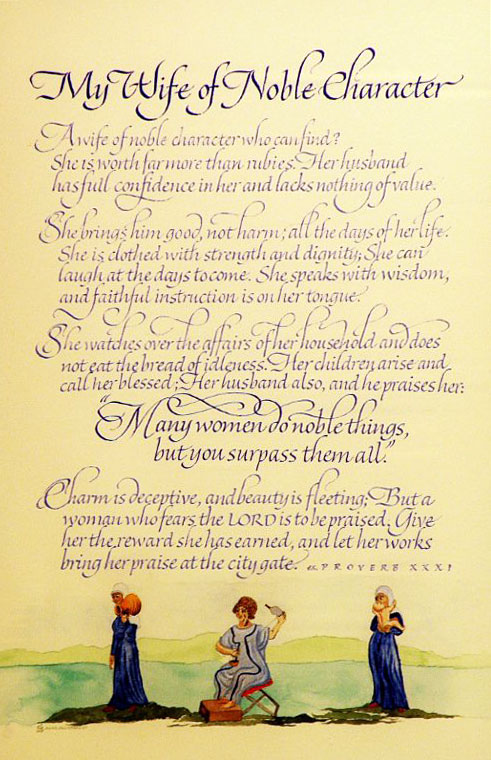 My Wife of Noble Character
A wife of noble character who can find?
She is worth far more than rubies. Her husband
has full confidence in her and lacks nothing of value.
She brings him good, not harm; all the days of her life.
She is clothed with strength and dignity; She can
laugh at the days to come. She speaks with wisdom,
and faithful instruction is on her tongue.
She watches over the affairs of her household and does
not eat the bread of idleness. Her children arise and
call her blessed; Her husband also, and he praises her:
"Many women do noble things,
but you surpass them all."
Charm is deceptive, and beauty is fleeting; But a
woman who fears the LORD is to be praised. Give
her the reward she has earned, and let her works
bring her praise at the city gate. PROVERB XXXI